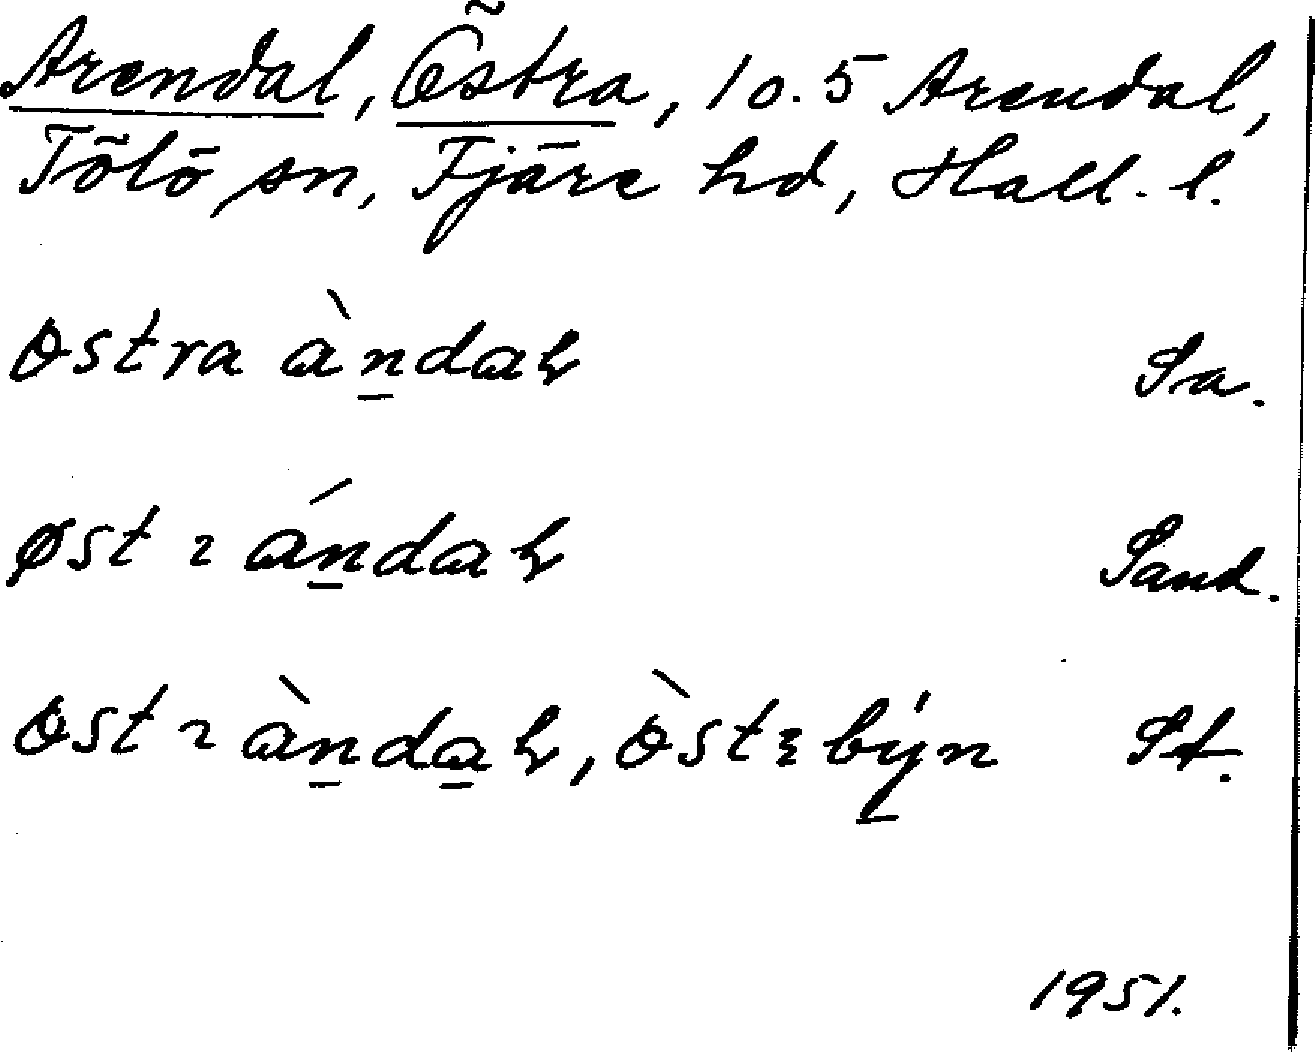 Arendal, Östra, 10.5 Arendal,
Tölö sn, Fjäre hd, Hall. l.
ɵstra àndaɫ Sa.
øst ɿ ándaɫ Sand.
ɵst ɿ àndaɫ, ɵ̀stɛ býn St.
1951.